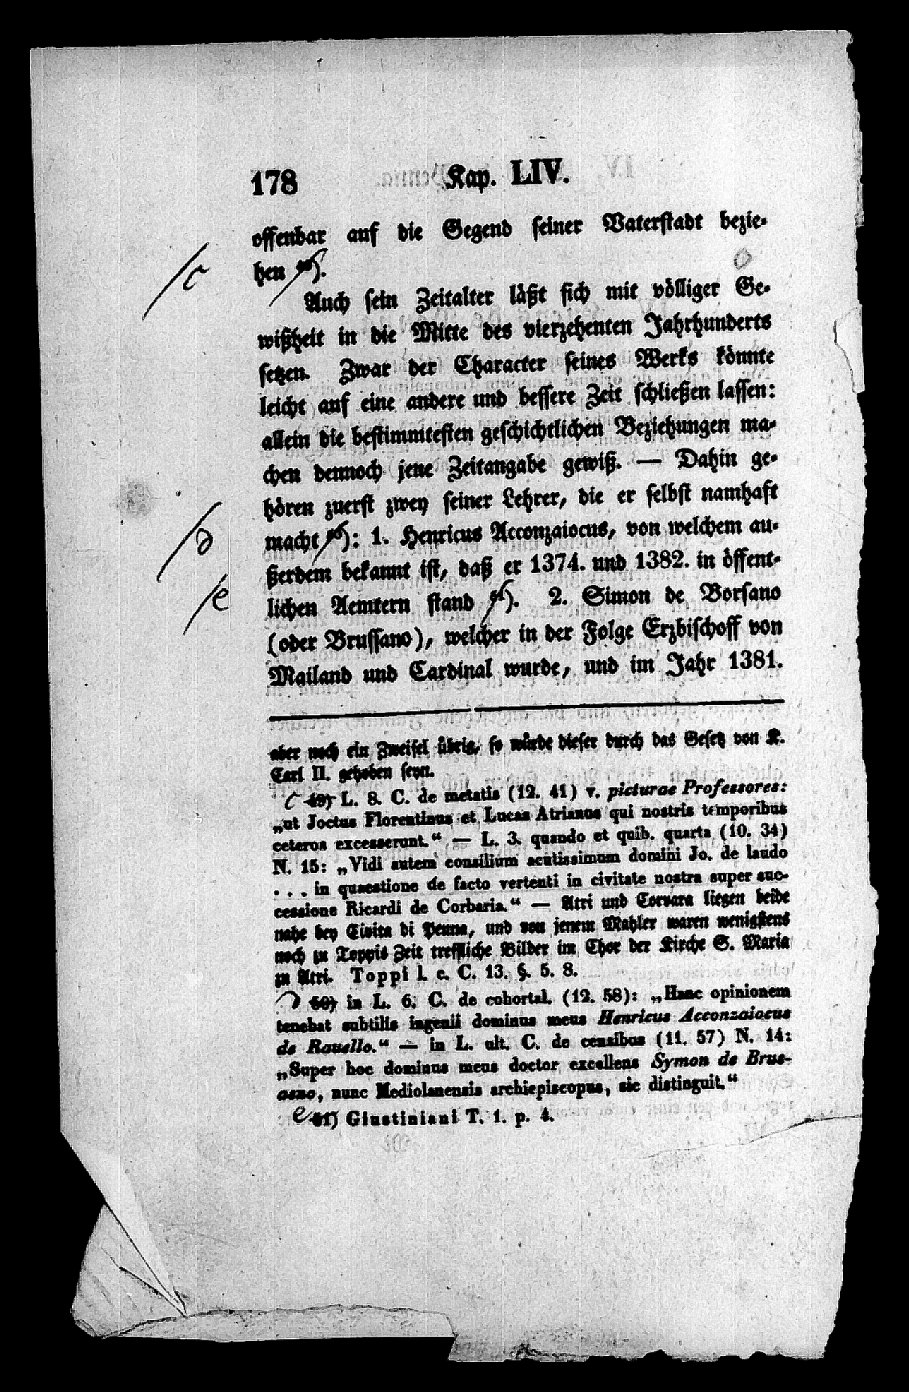 178 Kap. LIV.
offenbar auf die Gegend seiner Vaterstadt bezie-
/c hen ).
Auch sein Zeitalter läßt sich mit völliger Ge-
wißheit in die Mitte des vierzehenten Jahrhunderts
setzen. Zwar der Character seines Werks könnte
leicht auf eine andere und bessere Zeit schließen lassen:
allein die bestimmtesten geschichtlichen Beziehungen ma-
chen dennoch jene Zeitangabe gewiß. — Dahin ge-
hören zuerst zwey seiner Lehrer, die er selbst namhaft
/d macht ): 1. Henricus Acconzaiocus, von welchem au-
ßerdem bekannt ist, daß er 1374. und 1382. in öffent-
/e lichen Aemtern stand ). 2. Simon de Borsano
(oder Brussano), welcher in der Folge Erzbischoff von
Mailand und Cardinal wurde, und im Jahr 1381.
aber noch ein Zweifel übrig, so würde dieser durch das Gesetz von K.
Carl II. gehoben seyn.
c 49) L. 8. C. de metatis (12. 41) v. picturae Professores:
„ut Joctus Florentinus et Lucas Atrianus qui nostris temporibus
ceteros excesserunt.“ — L. 3. quando et quib. quarta (10. 34)
N. 15: „Vidi autem consilium acutissimum domini Jo. de laudo
. . . in quaestione de facto vertenti in civitate nostra super suc-
cessione Ricardi de Corbaria.“ — Atri und Corvara liegen beide
nahe bey Civita di Penna, und von jenem Mahler waren wenigstens
noch zu Toppis Zeit treffliche Bilder im Chor der Kirche S. Maria
zu Atri. Toppi l. c. C. 13. §. 5. 8.
d 50) in L. 6. C. de cohortal. (12. 58): „Hanc opinionem
tenebat subtilis ingenii dominus meus Henricus Acconzaiocus
de Ravello.“ — in L. ult. C. de censibus (11. 57) N. 14:
„Super hoc dominus meus doctor excellens Symon de Brus-
asno, nunc Mediolanensis archiepiscopus, sic distinguit.“
e 51) Giustiniani T. 1. p. 4.